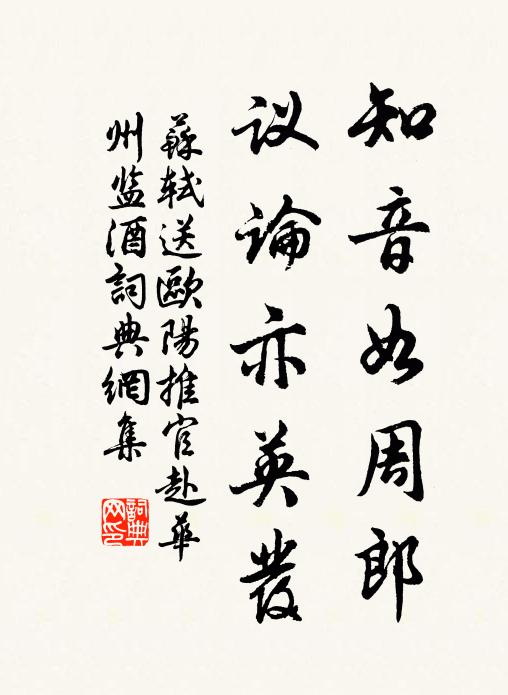 知音如周郎
议論亦英發
蘇轼送歐陽推官赴華
州监酒詞典網集
詞典
网印